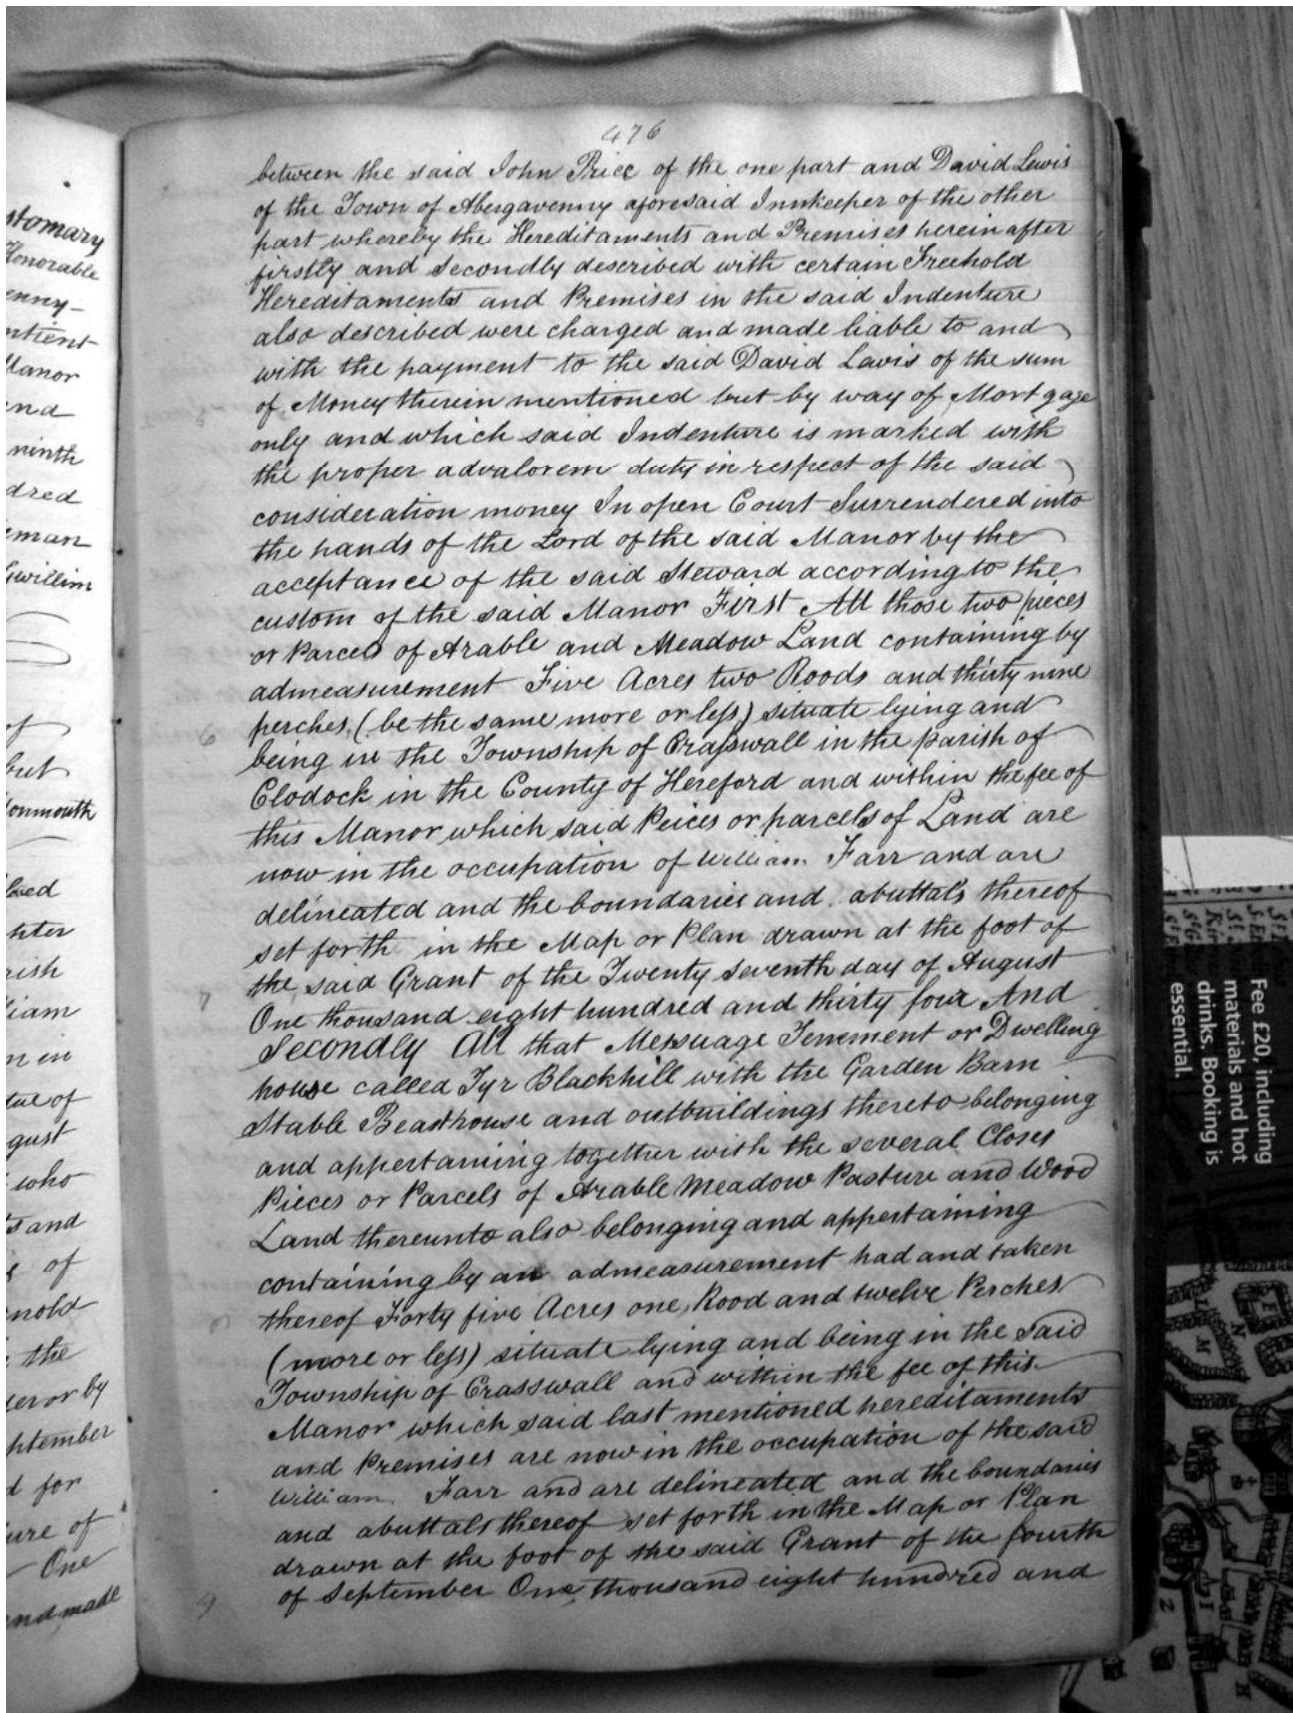 stomary
Honorable
enny-
ntient
Manor
nd
ninth
dred
eman
Gwillim
of
but
onmouth
hter
rish
liam
n in
tue of
gust
who
s and
of
nold
the
er or by
ptember
d for
ure of
One
nd made
476
between the said John Price of the one part and David Lewis
of the Town of Abergavenny aforesaid Innkeeper of the other
part whereby the Hereditaments and Premises herein after
firstly and Secondly described with certain Freehold
Hereditaments and Premises in the said Indenture
also described were charged and made liable to and
with the payment to the said David Lewis of the sum
of Money therein mentioned but by way of Mortgage
only and which said Indenture is marked with
the proper advalorem duty in respect of the said
consideration money In open Court Surrendered into
the hands of the Lord of the said Manor by the
acceptance of the said Steward according to the
custom of the said Manor First All those two pieces
or Parcels of Arable and Meadow Land containing by
admeasurement Five Acres two Roods and thirty nine
perches (be the same more or less) situate lying and
being in the Township of Crasswall in the parish of
Clodock in the County of Hereford and within the fee of
this Manor which said Peices or parcels of Land are
now in the occupation of William Farr and are
delineated and the boundaries and abuttals thereof
set forth in the Map or Plan drawn at the foot of
the said Grant of the Twenty seventh day of August
One thousand eight hundred and thirty four And
Secondly All that Messuage Tenement or Dwelling
house called Tyr Blackhill with the Garden Barn
Stable Beasthouse and outbuildings thereto belonging
and appertaining together with the several Closes
Pieces or Parcels of Arable Meadow Pasture and Wood
Land thereunto also belonging and appertaining
containing by an admeasurement had and taken
thereof Forty five Acres one Rood and twelve Perches
(more or less) situate lying and being in the said
Township of Crasswall and within the fee of this
Manor which said last mentioned hereditaments
and Premises are now in the occupation of the said
William Farr and are delineated and the boundaries
and abuttals thereof set forth in the Map or Plan
drawn at the foot of the said Grant of the fourth
of September One thousand eight hundred and
6
7
9
Fee £20, including
materials and hot
drinks. Booking is
essential.